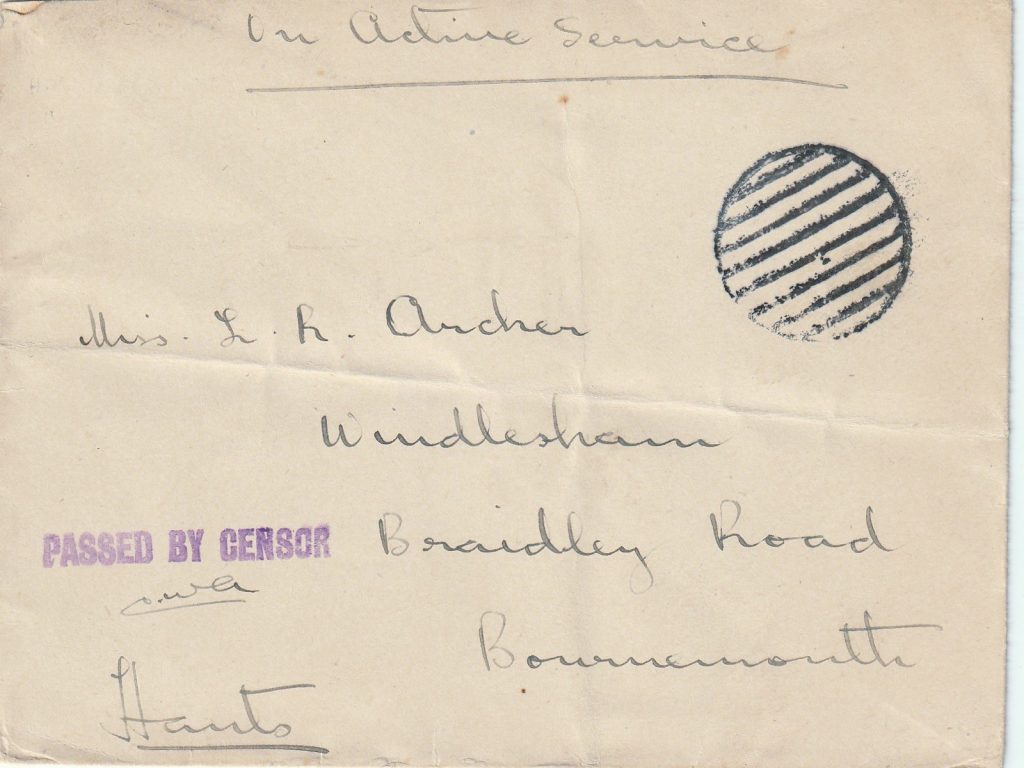 On Active Service
Miss. L. R. Archer
Windlesham
Braidley Road
PASSED BY CENSOR
Bournemouth
Hants